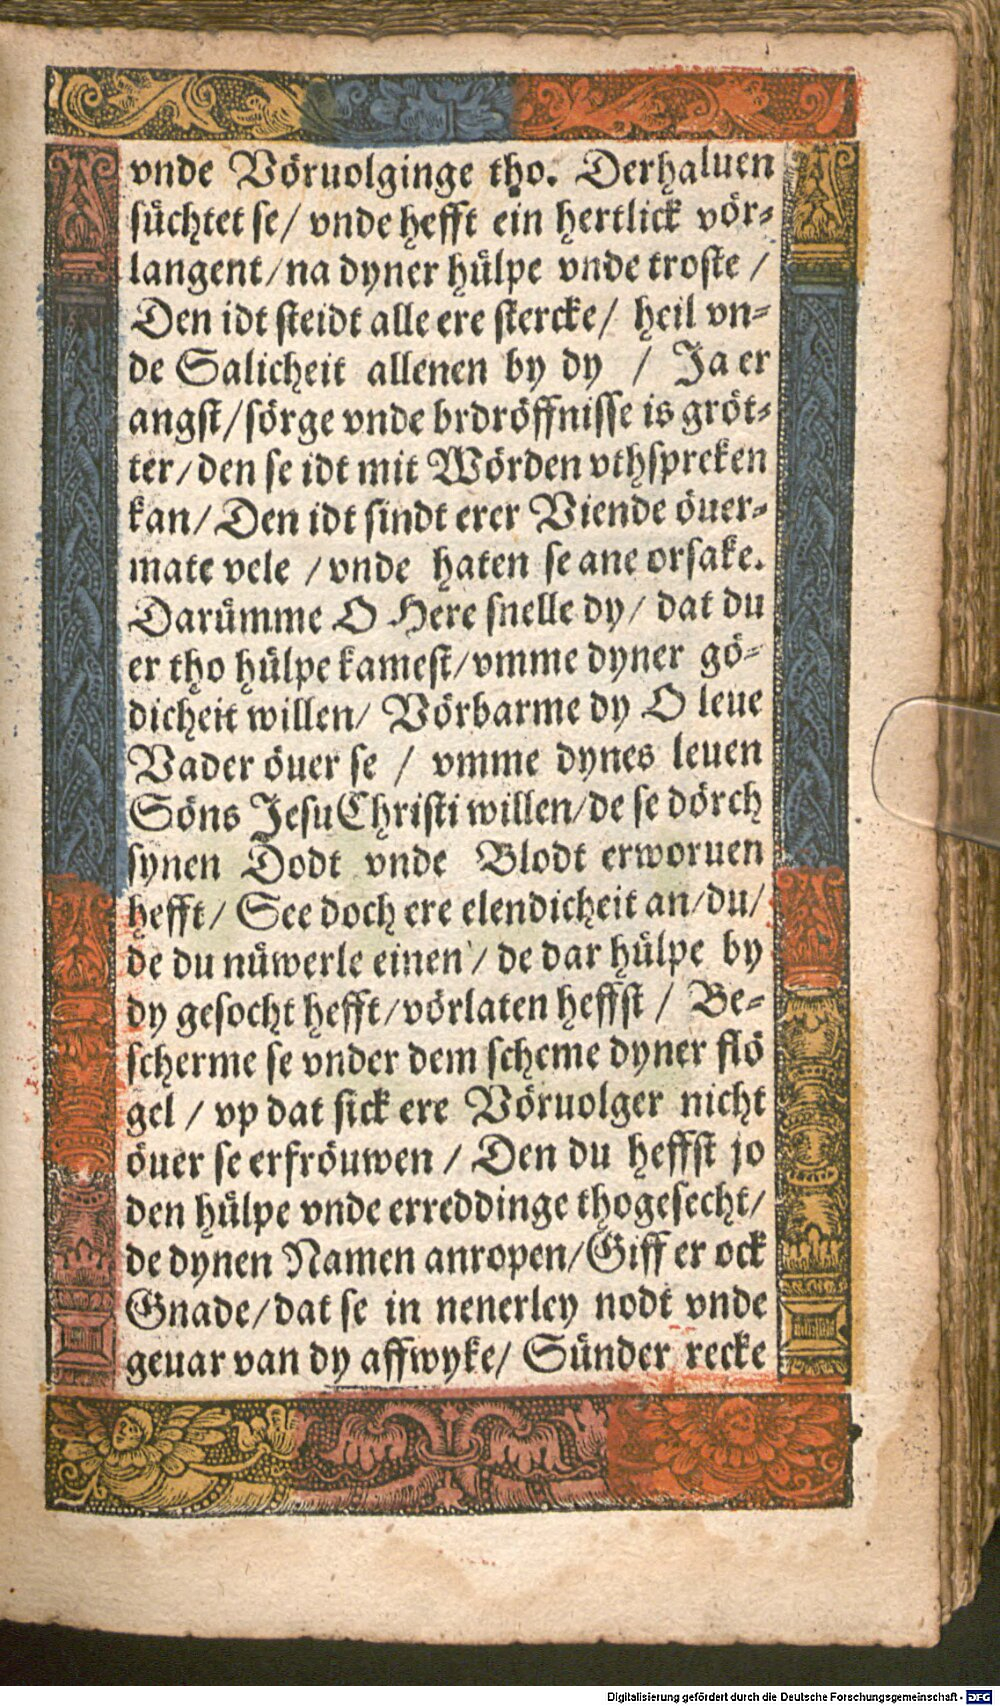 vnde Vöruolginge tho. Derhaluen
süchtet se/ vnde hefft ein hertlick vör⸗
langent/na dyner hülpe vnde troste /
Den idt steidt alle ere stercke/ heil vn⸗
de Salicheit allenen by dy / Ja er
angst/sörge vnde brdröffnisse is gröt⸗
ter/den se idt mit Wörden vthspreken
kan/Den idt sindt erer Viende öuer⸗
mate vele /vnde haten se ane orsake.
Darümme O Here snelle dy/ dat du
er tho hülpe kamest/vmme dyner gö⸗
dicheit willen/ Vörbarme dy O leue
Vader öuer se / vmme dynes leuen
Söns Jesu Christi willen/de se dörch
synen Dodt vnde Blodt erworuen
hefft/ See doch ere elendicheit an/du/
de du nüwerle einen / de dar hülpe by
dy gesocht hefft/vörlaten heffst / Be⸗
scherme se vnder dem scheme dyner flö
gel / vp dat sick ere Vöruolger nicht
öuer se erfröuwen / Den du heffst jo
den hülpe vnde erreddinge thogesecht/
de dynen Namen anropen/Giff er ock
Gnade/dat se in nenerley nodt vnde
geuar van dy affwyke/ Sünder recke
Digitalisierung gefördert durch die Deutsche Forschungsgemeinschaft - DFG